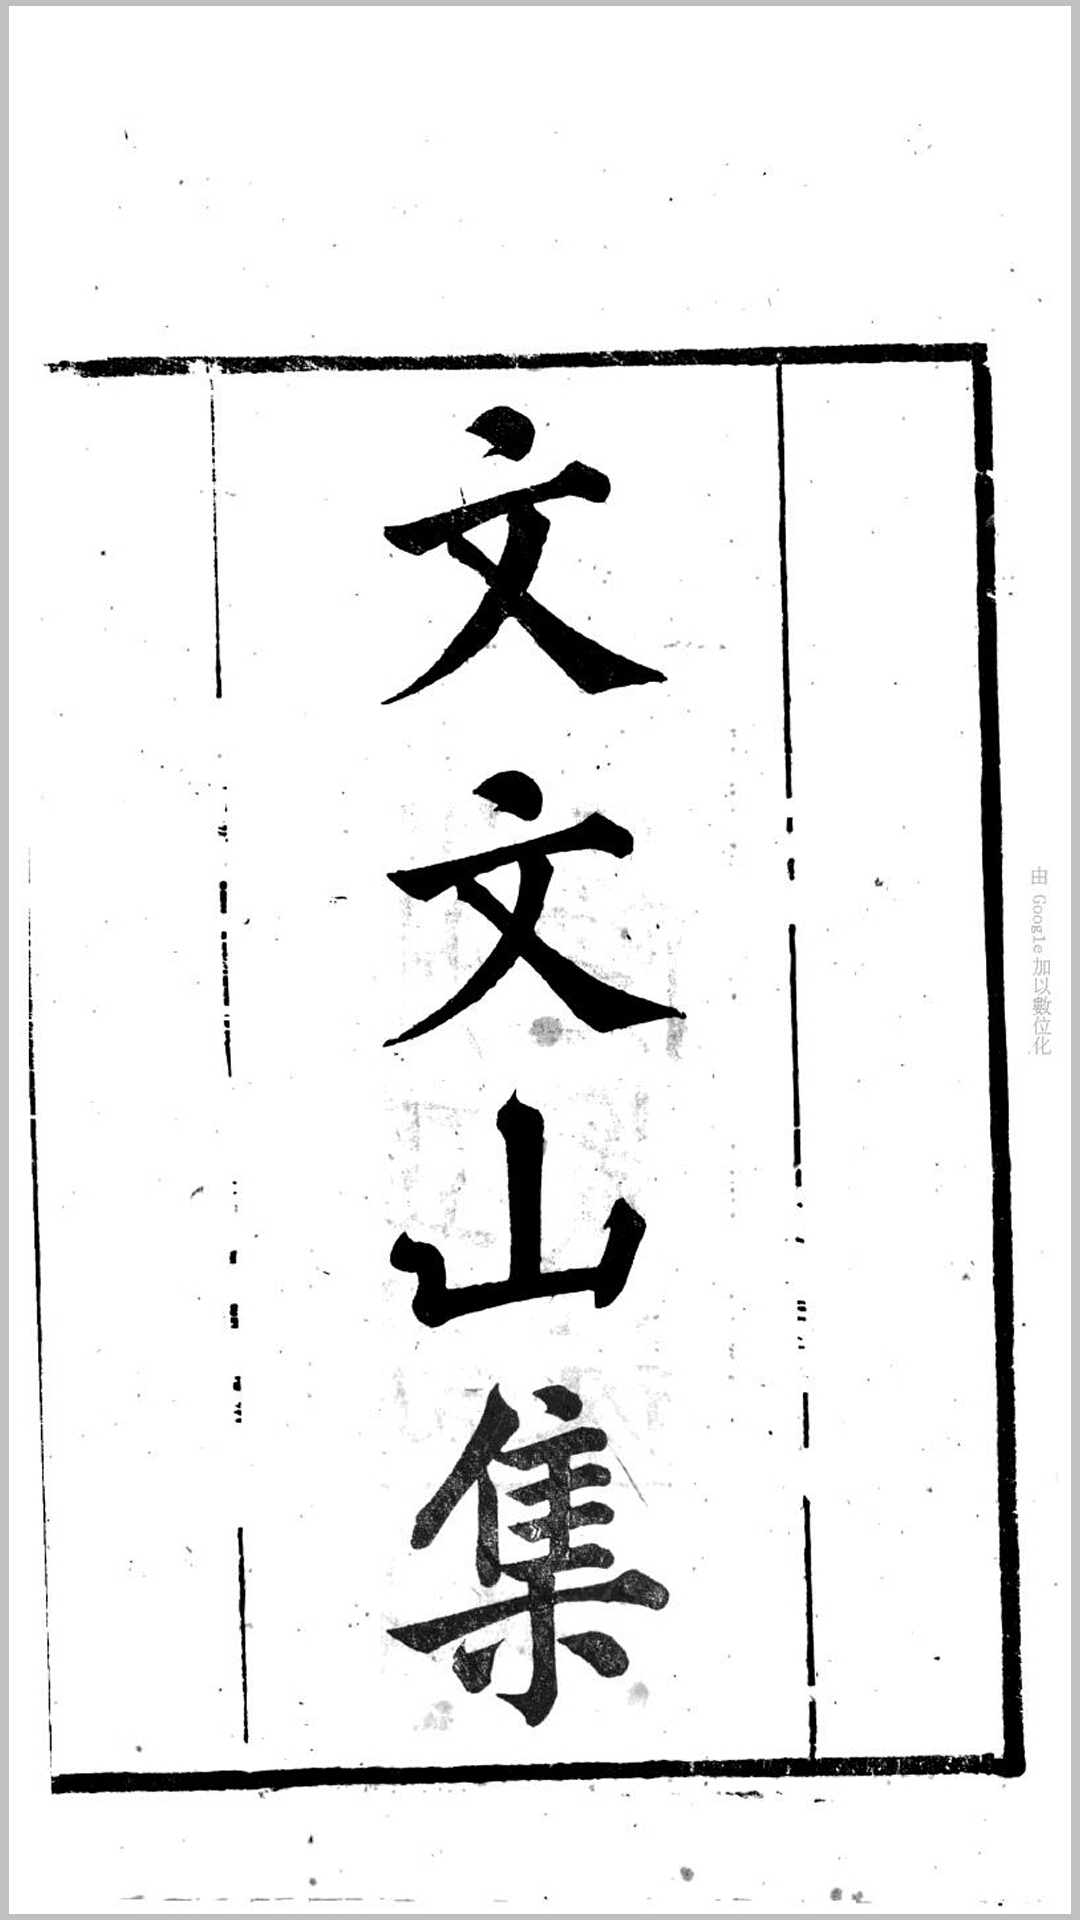 文文山集
由 Google 加以數位化